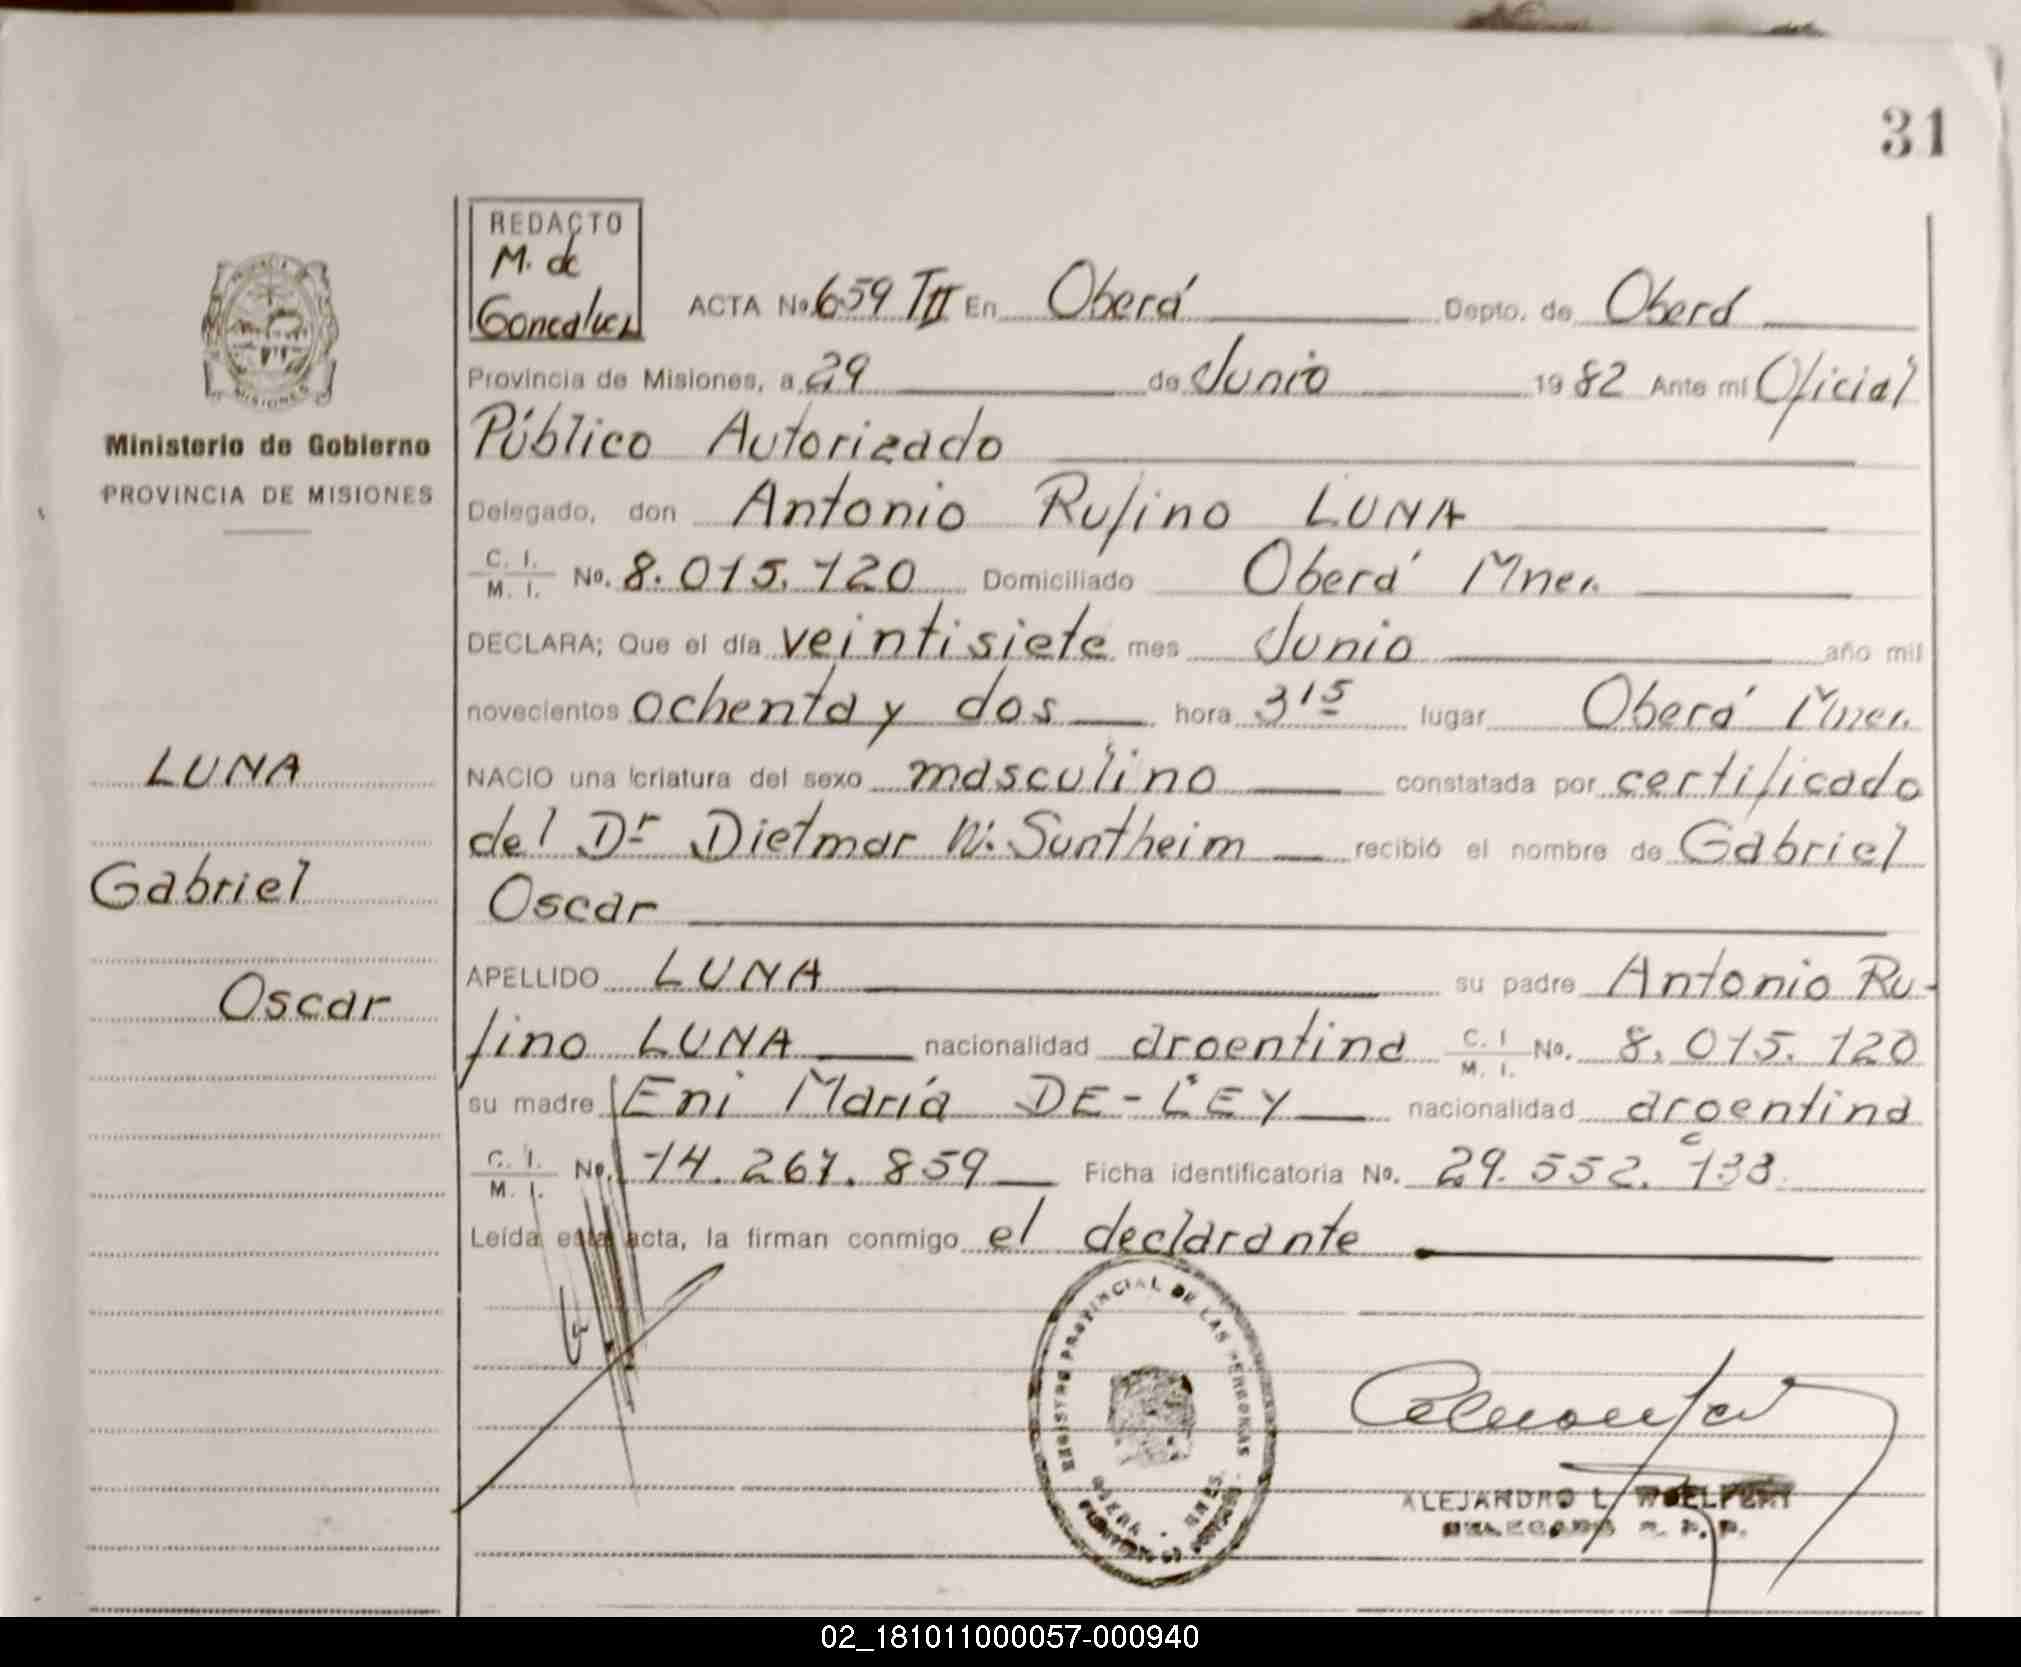 31
REDACTO
M. de
Goncalves
ACTA No. 659 TII En Oberá Depto. de Oberá
Provincia de Misiones, a 29 de Junio 1982 Ante mi Oficial
Público Autorizado
Delegado, don Antonio Rufino LUNA
C. I. M. I. No. 8.015.120 Domiciliado Oberá Mnes.
DECLARA; Que el día veintisiete mes Junio año mil
novecientos ochenta y dos hora 3 15 lugar Oberá Mnes.
NACIO una criatura del sexo masculino constatada por certificado
del Dr Dietmar W. Suntheim recibió el nombre de Gabriel
Oscar
APELLIDO LUNA su padre Antonio Ru-
fino LUNA nacionalidad argentina C. I M. I. No. 8.015.120
su madre Eni María DE-LEY nacionalidad argentina
C. I. M. I. No. 14.267.859 Ficha identificatoria No. 29.552.133
Leída esta acta, la firman conmigo el declarante
PROVINCIA DE
MISIONES
Ministerio de Gobierno
PROVINCIA DE MISIONES
LUNA
Gabriel
Oscar
REGISTRO PROVINCIAL DE LAS PERSONAS
ALEJANDRO L. WOELFERT
DELEGADO R. P. P.
02_181011000057-000940